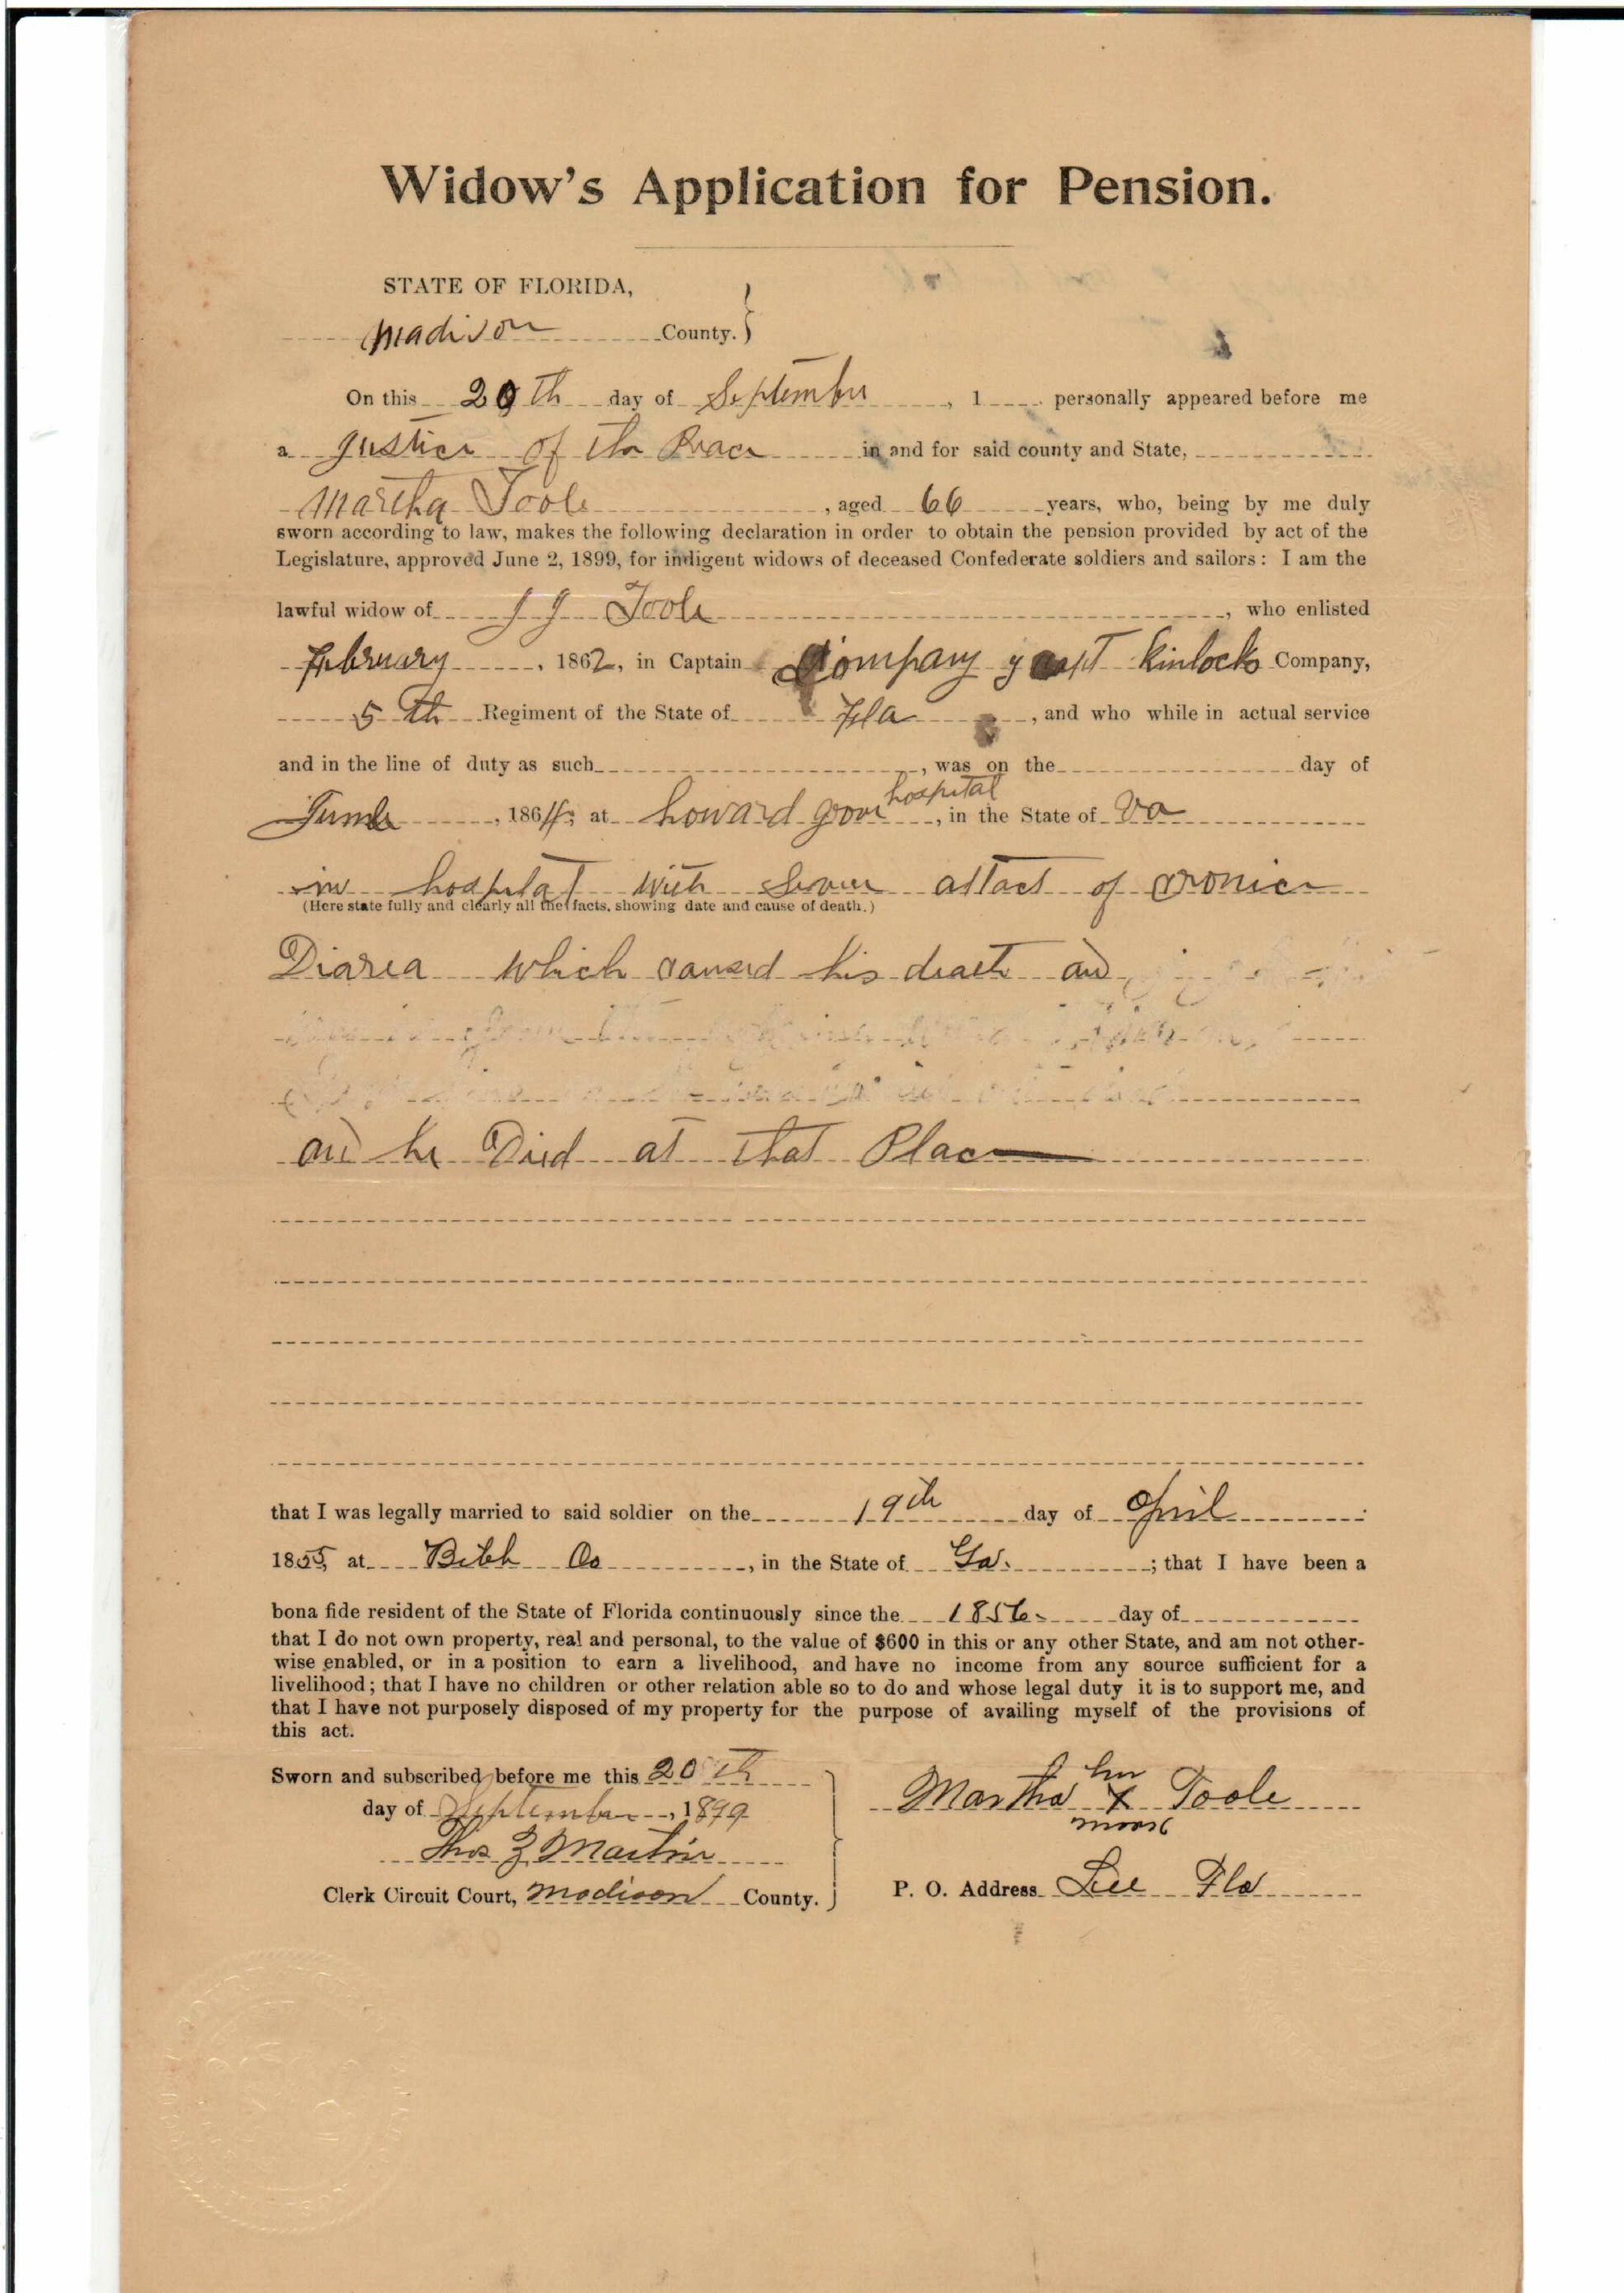 Widow's Application for Pension.
STATE OF FLORIDA,
Madison County.
On this 20th day of September, 1 personally appeared before me
a Justice of the Peace in and for said county and State,
Martha Toole, aged 66 years, who, being by me duly
sworn according to law, makes the following declaration in order to obtain the pension provided by act of the
Legislature, approved June 2, 1899, for indigent widows of deceased Confederate soldiers and sailors: I am the
lawful widow of J J Toole, who enlisted
February, 1862, in Captain Company g capt Kinlocks Company,
5th Regiment of the State of Fla, and who while in actual service
and in the line of duty as such, was on the day of
hospital
June, 1864, at howard grove, in the State of Va
in hospital with sever attact of cronice
(Here state fully and clearly all the facts, showing date and cause of death.)
Diarea which caused his death and
and he Died at that Place
that I was legally married to said soldier on the 19th day of April
1855, at Bibb Co, in the State of Ga.; that I have been a
bona fide resident of the State of Florida continuously since the 1856 day of
that I do not own property, real and personal, to the value of $600 in this or any other State, and am not other-
wise enabled, or in a position to earn a livelihood, and have no income from any source sufficient for a
livelihood; that I have no children or other relation able so to do and whose legal duty it is to support me, and
that I have not purposely disposed of my property for the purpose of availing myself of the provisions of
this act.
Sworn and subscribed before me this 20th
day of September, 1899
Thos Z Martin
Clerk Circuit Court, Madison County.
her
Martha X Toole
mark
P. O. Address Lee Fla